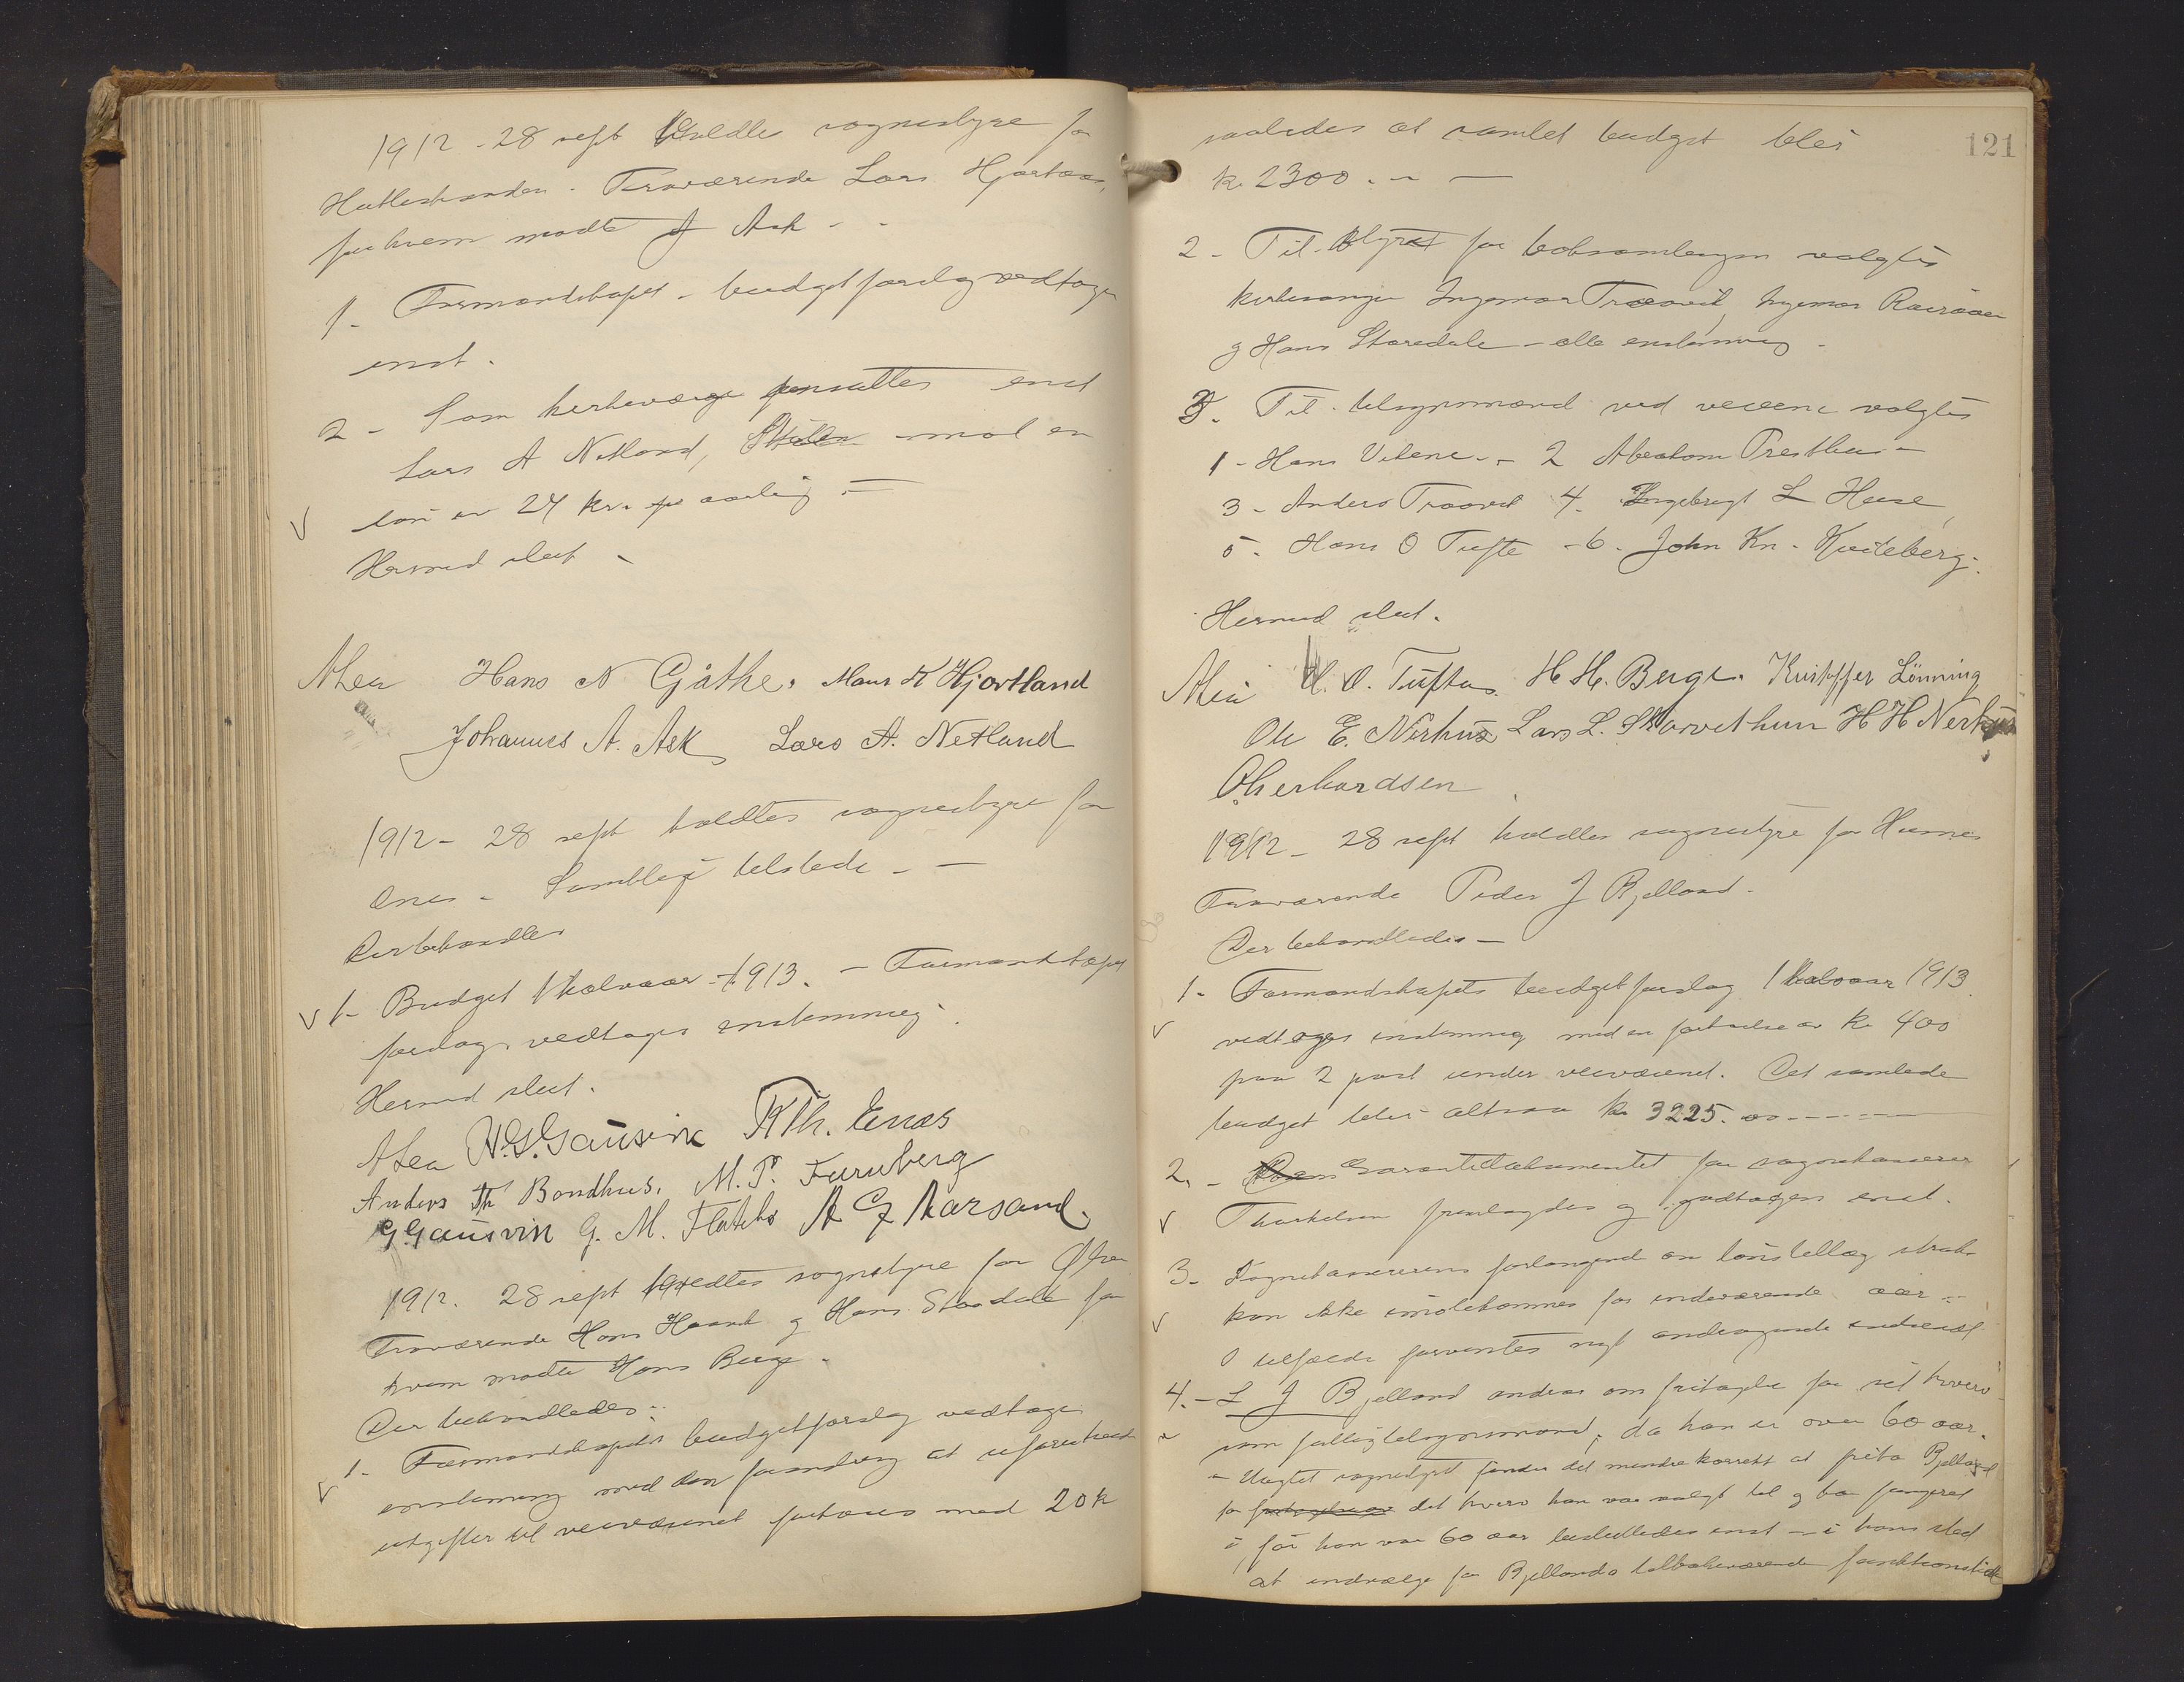 1912 - 28 sept holdtes sognestyre for
Hatlestranden. Fraværende Lars Hjortaas,
for hvem mødte J Ask -
1 - Formandskapet - budgetforslag vedtages
enst.
2 - Som kirkeværge ansattes enst
Lars A Netland, mot en
løn av 24 kr. aarlig -
Hermed slut -
ALea Hans N Gåthe. Maur K Hjortland
Johannes A. Ask Lars A. Netland
1912 - 28 sept holdtes sognestyre for
Ænes - Samtlige tilstede -
Der behandles
1 - Budget 1 halvaar 1913. - Formandskapets
forslag vedtages enstemmig.
Hermed slut.
ALea H.G. Gausvik K Th. Enæs
Anders Th Bondhus. M. P. Furuberg
G Gausvik G. M. Flatebø A G Aarsand.
1912. 28 sept holdtes sognestyre for Ølve
Fraværende Hans Haavik og Hans Staadale for
hvem mødte Hans Berge -
Der behandledes -
1 - Formandskapets budgetforslag vedtages
enstemmig med den forandring at uforutseede
utgifter til veivæsenet forhøies med 20 k
121
saaledes at samlet budget blir
kr 2300 . - -
2 - Til styret for boksamlingen valgtes
kirkesanger Ingemar Træavik, Ingemar
og Hans Staredale - alle enstemmig -
3. Til tilsynsmænd ved veiene valgtes
1 - Hans Vilene - 2 Abraham Presthus -
3 - Anders Traavik 4. Engebregt L Huse,
5. Hans O Tufte - 6. John Kn. Kviteberg.
Hermed slut.
ALea H. O. Tuftes H H. Berge. Kristoffer Lönning
Ole E. Nerhus Lars L. Skarvethun H H Nerhus
O. Gerhardsen
1912 - 28 sept holdtes sognestyre for Humes
Fraværende Peder J Bjelland -
Der behandledes -
1 - Formandskapets budgetforslag 1 halvaar 1913
vedtages enstemmig med en forhøielse av kr 400
paa 2 post under veivæsenet. Det samlede
budget blir altsaa kr 3225.00 - - - -
2. - Garantidokumentet for sognekasserer
Thorkelsen fremlagdes og godtages enst.
3 - Sognekassererens forlangende om lønstillæg straks
kan ikke imøtekommes for indeværende aar -
I tilfælde forventes nyt andragende indsendt
4. - L J Bjelland andrar om fritagelse for sit hverv
som fattigtilsynsmand, da han er over 60 aar.
- Uagtet sognestyret finder det mindre korrekt at frita Bjelland
for det hverv han var valgt til og har fungeret
i, før han var 60 aar besluttedes enst - i hans sted
at indvælge for Bjellands tilbakeværende funktionstid